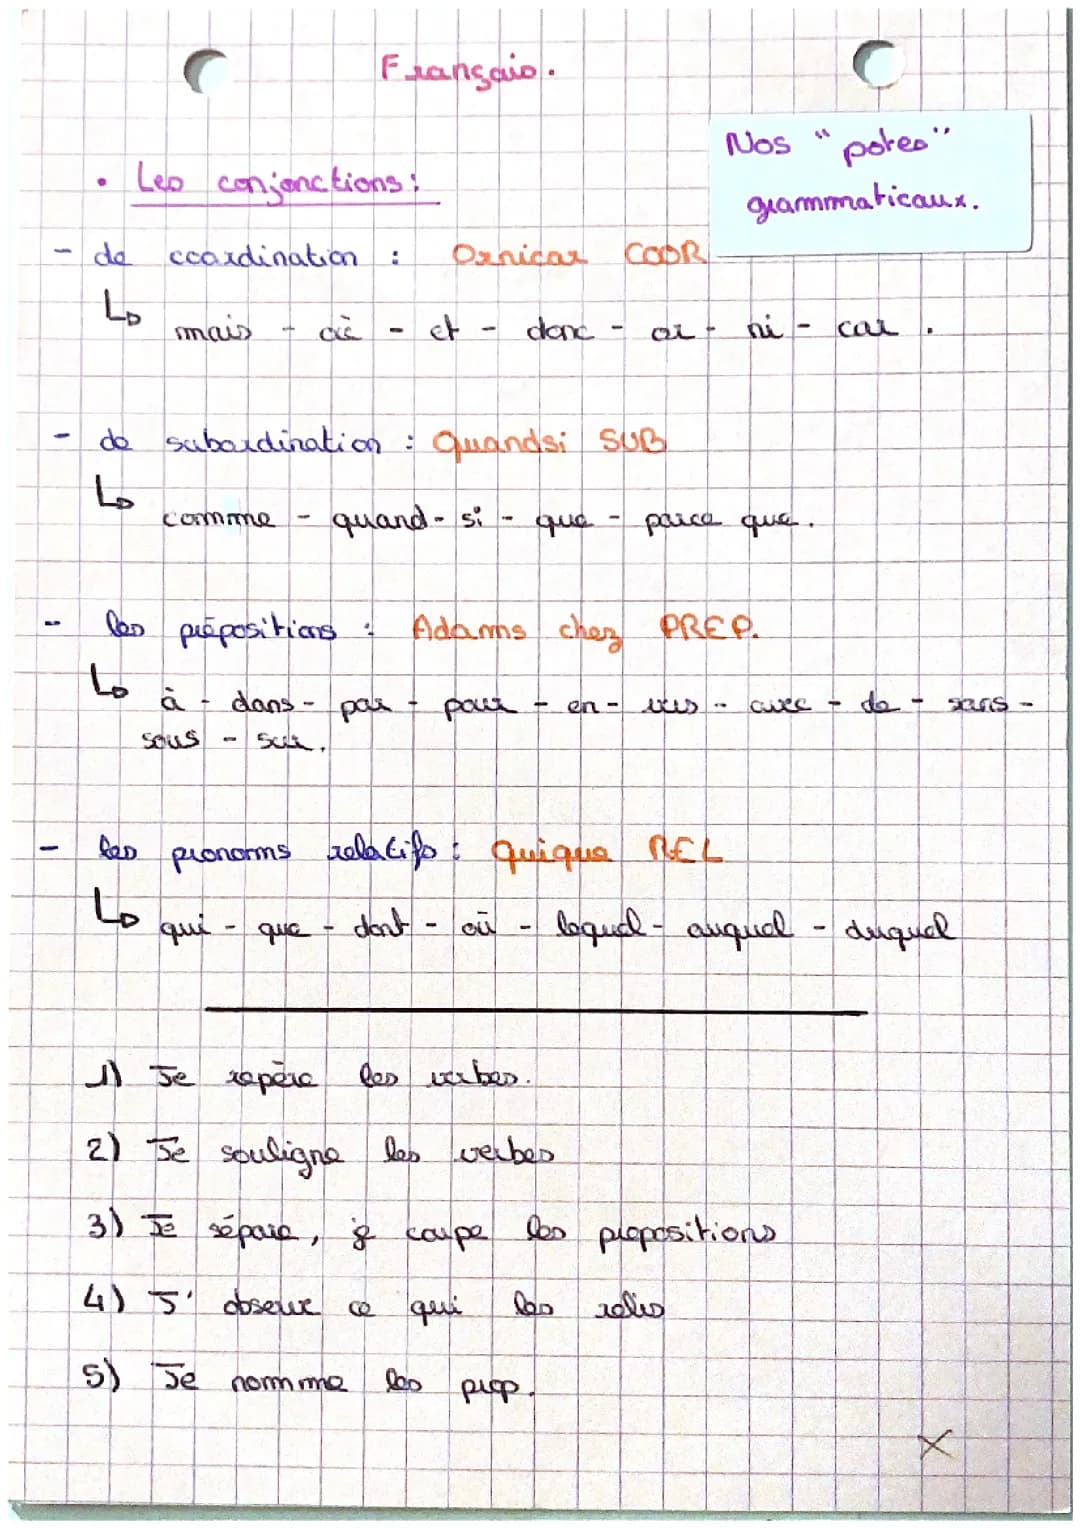 Français.
Nos "potes"
grammaticaux.
• Les conjonctions :
- de coordination : Ornicar COOR
↳ mais - où - et - donc - or - ni - car .
- de subordination : Quandsi SUB
↳ comme - quand - si - que - parce que.
- les prépositions : Adams chez PREP.
↳ à - dans - par - pour - en - vers - avec - de - sans -
sous - sur.
- les pronoms relatifs : Quique REL
↳ qui - que - dont - où - lequel - auquel - duquel
1) Je repère les verbes.
2) Je souligne les verbes
3) Je sépare, je coupe les propositions
4) J' observe ce qui les relis
5) Je nomme les prop.
X